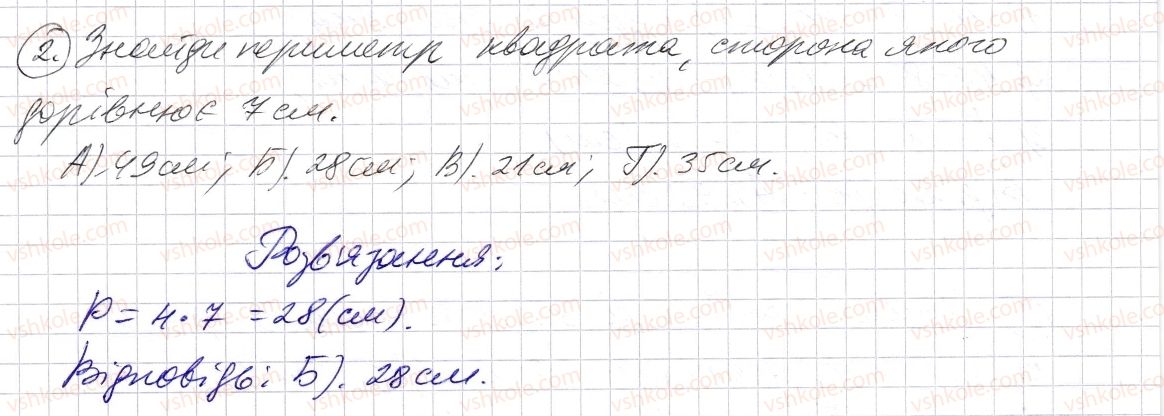 2. Знайди периметр квадрата, сторона якого
дорівнює 7 см.
А). 49 см; Б). 28 см; В). 21 см; Г). 35 см.
Розв'язання:
P = 4 · 7 = 28 (см).
Відповідь: Б). 28 см.